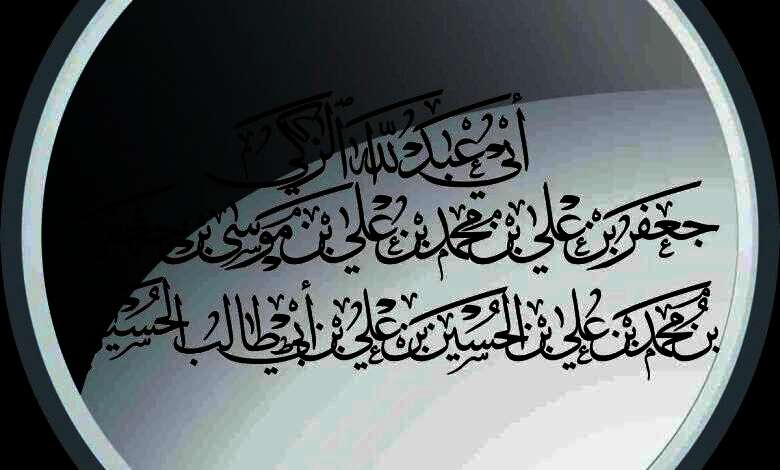 أبي عبد الله الزكي
جعفر بن علي بن محمد بن علي بن موسى بن جعفر
بن محمد بن علي بن الحسين بن علي بن أبي طالب الحسيني